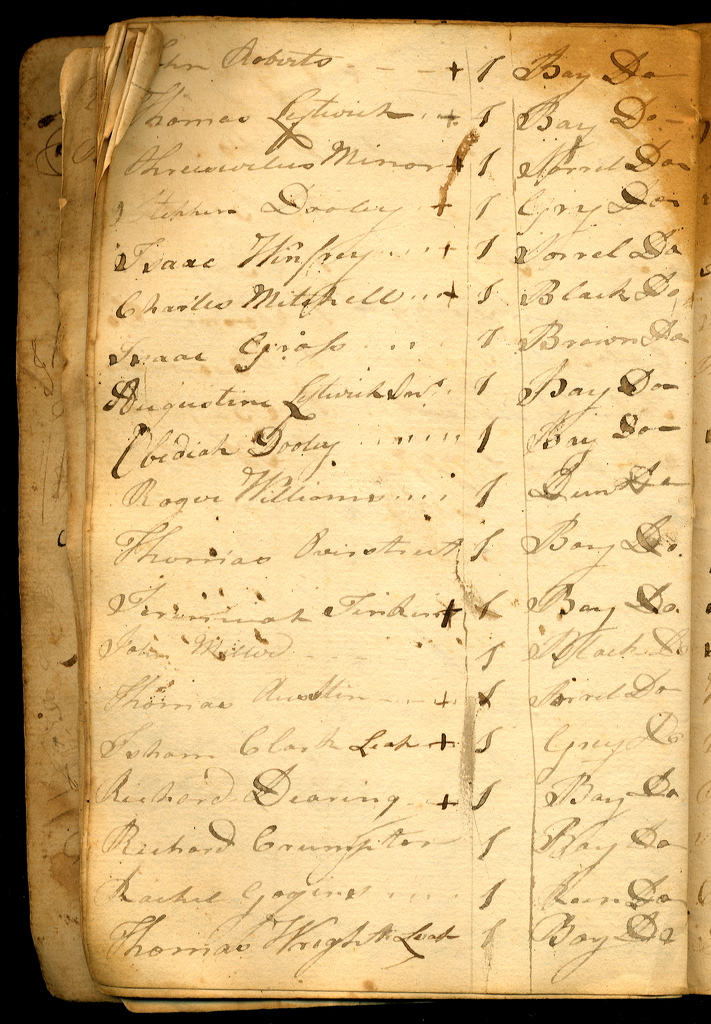 John Roberts - - - + 1 Bay Do
Thomas Leftwich .. + 1 Bay Do -
Threewitus Minor + 1 Sorrel Do
Stephen Dooley + 1 Grey Do
Isaac Winfrey ... + 1 Sorrel Do
Charles Mitchell ... + 1 Black Do
Isaac Gross .. .. 1 Brown Do
Augustine Leftwich Junr. .. 1 Bay Do
Obediah Dooley ........ 1 Bay Do
Roger Williams .... 1 Dun Do
Thomas Overstreet 1 Bay Do.
Jeremiah Jenkins + 1 Bay Do.
John Milled - - - 1 Black Do
Thomas Austin - - + 1 Sorrel Do
Isham Clark + 1 Grey Do
Richard Dearing - + 1 Bay Do
Richard Crumpton 1 Bay Do
Rachel Gogins .... 1 Do
Thomas Wright 1 Bay Do